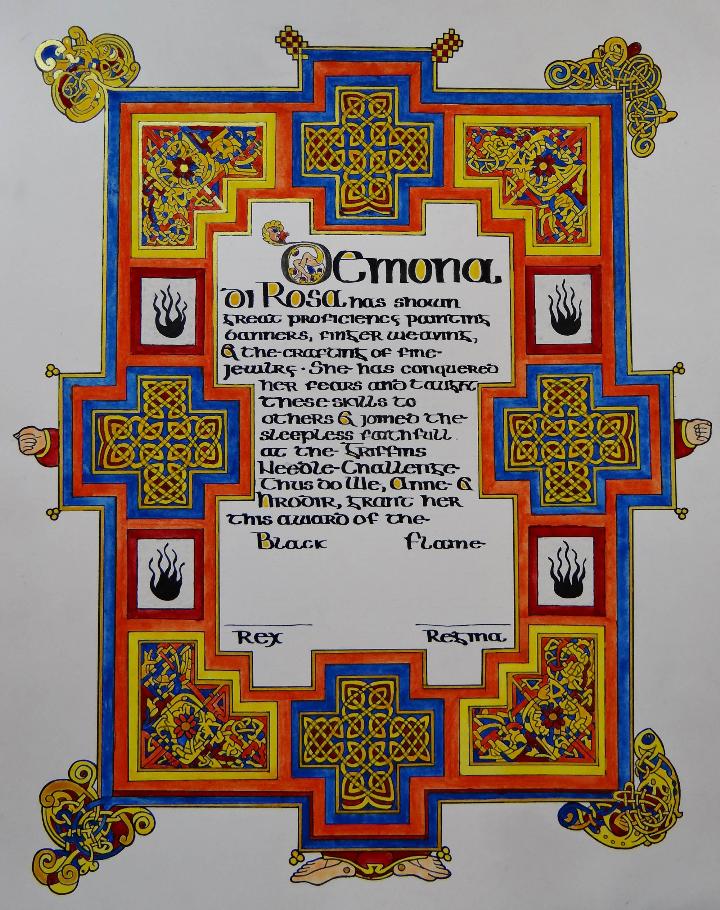 Demona
di Rosa has shown
great proficiency painting
banners, finger weaving,
& the crafting of fine
jewelry. She has conquered
her fears and taught
these skills to
others & joined the
sleepless faithfull
at the Griffins
Needle Challenge
Thus do We, Anne &
Hrodir, grant her
this award of the
Black Flame
Rex Regina